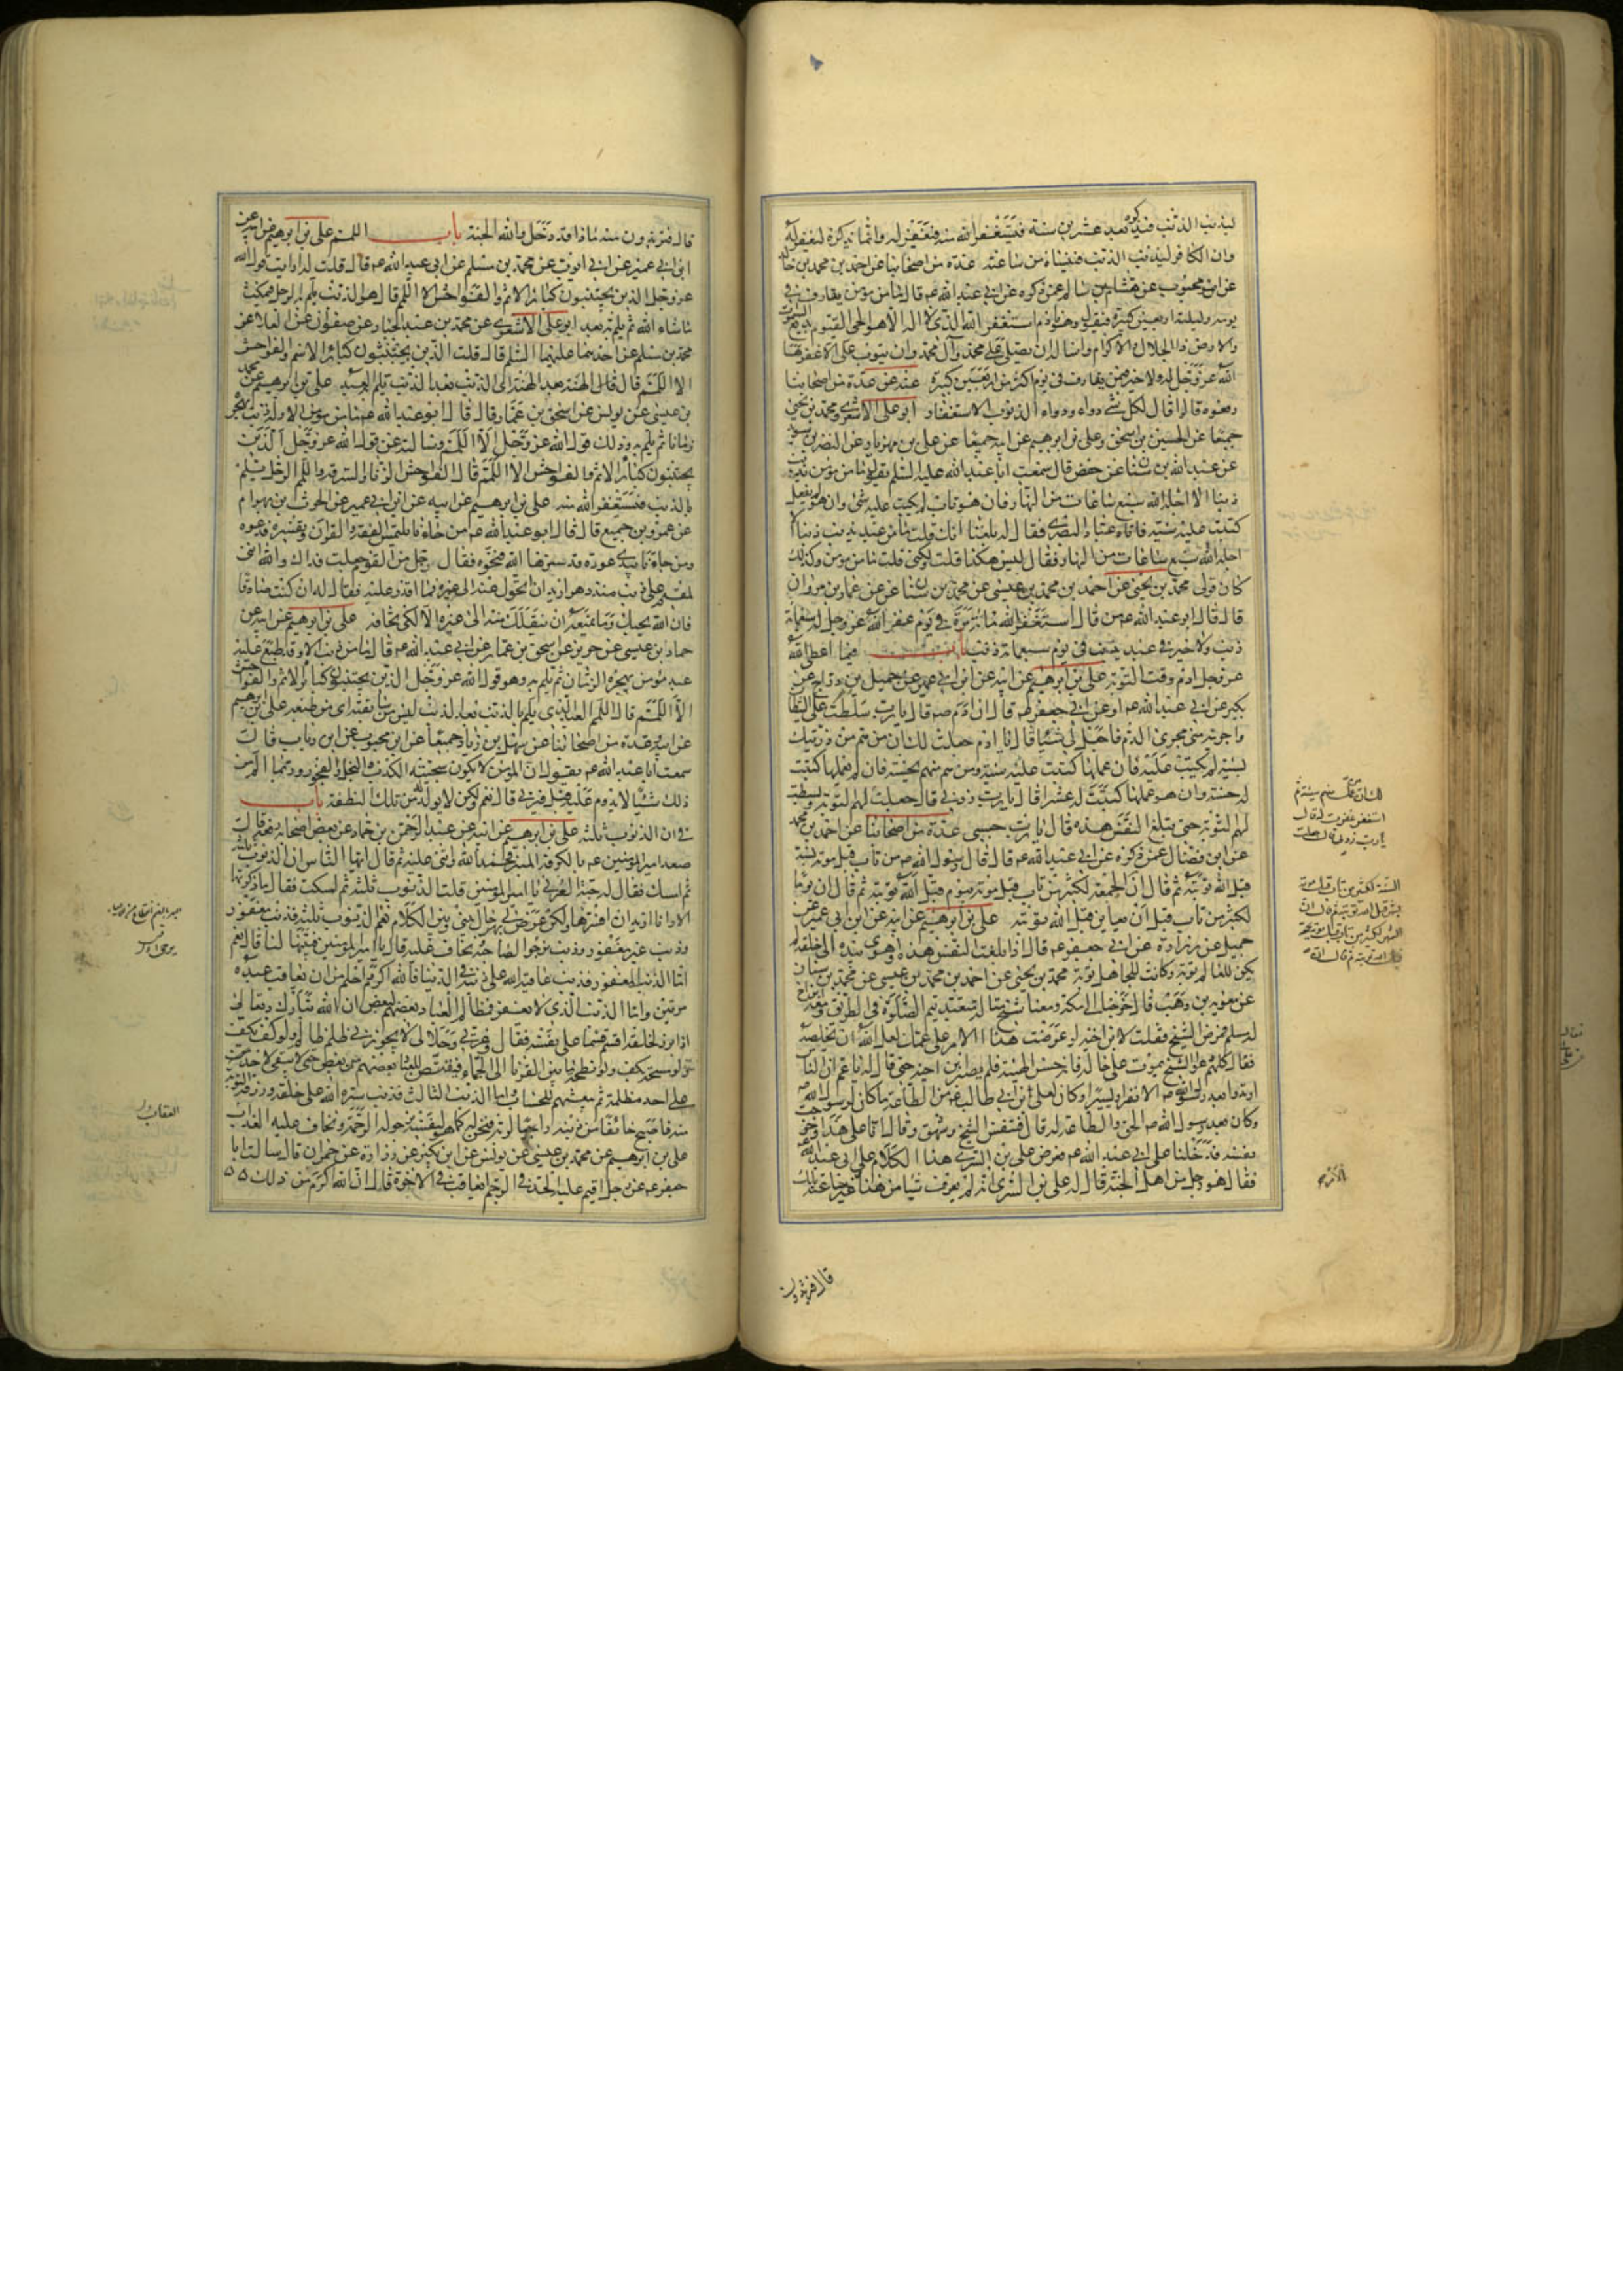 ليذنب الذنب فيذكره بعد عشرين سنة فيستغفر الله منه فيغفر له وانما يذكره ليغفر له
وان الكافر ليذنب الذنب فينساه من ساعته عدة من اصحابنا عن احمد بن محمد بن خالد
عن ابن محبوب عن هشام بن سالم عمن ذكره عن ابي عبد الله عه قال ما من مؤمن يقارف في
يومه وليلته اربعين كبيرة فيقول وهو نادم استغفر الله الذي لا اله الا هو الحي القيوم بديع السموات
والارض ذا الجلال والاكرام واساله ان يصلي على محمد وآل محمد وان يتوب علي الا غفرها
الله عز وجل له ولا خير فيمن يقارف في يوم اكثر من اربعين كبيرة عنه عن عدة من اصحابنا
رفعوه قالوا قال لكل شيء دواء ودواء الذنوب الاستغفار ابو علي الاشعري ومحمد بن يحيى
جميعا عن الحسين بن اسحق وعلي بن ابرهيم عن ابيه جميعا عن علي بن مهزيار عن النضر بن سويد
عن عبد الله بن سنان عن حفص قال سمعت ابا عبد الله عليه السلم يقول ما من مؤمن يذنب
ذنبا الا اجله الله سبع ساعات من النهار فان هو تاب لم يكتب عليه شيء وان هو لم يفعل
كتبت عليه سيئة فاتاه عباد البصري فقال له بلغنا انك قلت ما من عبد يذنب ذنبا الا
اجله الله سبع ساعات من النهار فقال ليس هكذا قلت ولكني قلت ما من مؤمن وكذلك
كان قولي محمد بن يحيى عن احمد بن محمد بن عيسى عن محمد بن سنان عن عمار بن مروان
قال قال ابو عبد الله عه من قال استغفر الله مائة مرة في يوم غفر الله عز وجل له سبعمائة
ذنب ولا خير في عبد يذنب في يوم سبعمائة ذنب باب فيما اعطى الله
عز وجل ادم وقت التوبة علي بن ابرهيم عن ابيه عن ابن ابي عمير عن جميل بن دراج عن
بكير عن ابي عبد الله عه او عن ابي جعفر عه قال ان ادم عه قال يا رب سلطت علي الشيطان
واجريته مني مجرى الدم فاجعل لي شيئا فقال يا ادم جعلت لك ان من هم من ذريتك
بسيئة لم يكتب عليه فان عملها كتبت عليه سيئة ومن هم منهم بحسنة فان لم يعملها كتبت
له حسنة وان هو عملها كتبت له عشرا قال يا رب زدني قال جعلت لهم التوبة وبسطت
لهم التوبة حتى يبلغ النفس هذه قال يا رب حسبي عدة من اصحابنا عن احمد بن محمد
عن ابن فضال عمن ذكره عن ابي عبد الله عه قال قال رسول الله صه من تاب قبل موته بسنة
قبل الله توبته ثم قال ان الجمعة لكثير من تاب قبل موته بيوم قبل الله توبته ثم قال ان يوما
لكثير من تاب قبل ان يعاين قبل الله توبته علي بن ابرهيم عن ابيه عن ابن ابي عمير عن
جميل عن زرارة عن ابي جعفر عه قال اذا بلغت النفس هذه واهوى بيده الى حلقه لم
يكن للعالم توبة وكانت للجاهل توبة محمد بن يحيى عن احمد بن محمد بن عيسى عن محمد بن سنان
عن معوية بن وهب قال خرجنا الى مكة ومعنا شيخ متاله متعبد يتم الصلوة في الطريق ومعه ابن اخ
له مسلم فمرض الشيخ فقلت لابن اخيه لو عرضت هذا الامر على عمك لعل الله ان يخلصه
فقال كلهم دعوا الشيخ يموت على حاله فانه حسن الهيئة فلم يصبر ابن اخيه حتى قال له يا عم ان الناس
ارتدوا بعد رسول الله صه الا نفرا يسيرا وكان لعلي بن ابي طالب عه من الطاعة ما كان لرسول الله صه
وكان بعد رسول الله صه الحق والطاعة له قال فتنفس الشيخ وشهق وقال انا على هذا وخرجت
نفسه فدخلنا على ابي عبد الله عه فعرض علي بن السري هذا الكلام على ابي عبد الله عه
فقال هو رجل من اهل الجنة قال له علي بن السري انه لم يعرف شيئا من هذا غير ساعته تلك
قال فتريدون
قال فتريدون منه ماذا قد دخل والله الجنة باب اللمم علي بن ابرهيم عن ابيه عن
ابن ابي عمير عن ابي ايوب عن محمد بن مسلم عن ابي عبد الله عه قال قلت له ارايت قول الله
عز وجل الذين يجتنبون كبائر الاثم والفواحش الا اللمم قال هو الذنب يلم به الرجل فيمكث
ما شاء الله ثم يلم به بعد ابو علي الاشعري عن محمد بن عبد الجبار عن صفوان عن العلاء عن
محمد بن مسلم عن احدهما عليهما السلم قال قلت الذين يجتنبون كبائر الاثم والفواحش
الا اللمم قال قال الهنة بعد الهنة اي الذنب بعد الذنب يلم به العبد علي بن ابرهيم عن محمد
بن عيسى عن يونس عن اسحق بن عمار قال قال ابو عبد الله عه ما من مؤمن الا وله ذنب يهجره
زمانا ثم يلم به وذلك قول الله عز وجل الا اللمم وسالته عن قول الله عز وجل الذين
يجتنبون كبائر الاثم والفواحش الا اللمم قال الفواحش الزنا والسرقة واللمم الرجل يلم
بالذنب فيستغفر الله منه علي بن ابرهيم عن ابيه عن ابن ابي عمير عن الحرث بن بهرام
عن عمرو بن جميع قال قال ابو عبد الله عه من جاءنا يلتمس الفقه والقرآن وتفسيره فدعوه
ومن جاءنا يبدي عورة قد سترها الله فنحوه فقال رجل من القوم جعلت فداك والله انني
لمقيم على ذنب منذ دهر اريد ان اتحول عنه الى غيره فما اقدر عليه فقال له ان كنت صادقا
فان الله يحبك وما يمنعه ان ينقلك منه الى غيره الا لكي تخافه علي بن ابرهيم عن ابيه عن
حماد بن عيسى عن حريز عن اسحق بن عمار عن ابي عبد الله عه قال ما من ذنب الا وقد طبع عليه
عبد مؤمن يهجره الزمان ثم يلم به وهو قول الله عز وجل الذين يجتنبون كبائر الاثم والفواحش
الا اللمم قال اللمم العبد الذي يلم بالذنب بعد الذنب ليس من سليقته اي من طبيعته علي بن ابرهيم
عن ابيه وعدة من اصحابنا عن سهل بن زياد جميعا عن ابن محبوب عن ابن رئاب قال
سمعت ابا عبد الله عه يقول ان المؤمن لا يكون سجيته الكذب والبخل والفجور وربما الم من
ذلك شيئا لا يدوم عليه قيل فيزني قال نعم ولكن لا يولد له من تلك النطفة باب
في ان الذنوب ثلثة علي بن ابرهيم عن ابيه عن عبد الرحمن بن حماد عن بعض اصحابه رفعه قال
صعد امير المؤمنين عه بالكوفة المنبر فحمد الله واثنى عليه ثم قال ايها الناس ان الذنوب ثلثة
ثم امسك فقال له حبة العرني يا امير المؤمنين قلت الذنوب ثلثة ثم امسكت فقال ما ذكرتها
الا وانا اريد ان افسرها ولكن عرض لي بهر حال بيني وبين الكلام نعم الذنوب ثلثة فذنب مغفور
وذنب غير مغفور وذنب نرجو لصاحبه ونخاف عليه قال يا امير المؤمنين فبينها لنا قال نعم
اما الذنب المغفور فذنب عاقبه الله على ذنبه في الدنيا فالله اكرم واحلم من ان يعاقب عبده
مرتين واما الذنب الذي لا يغفر فمظالم العباد بعضهم لبعض ان الله تبارك وتعالى
اذا برز لخلقه اقسم قسما على نفسه فقال وعزتي وجلالي لا يجوزني ظلم ظالم ولو كف بكف
ولو مسحة بكف ولو نطحة ما بين القرناء الى الجماء فيقتص للعباد بعضهم من بعض حتى لا يبقى لاحد
على احد مظلمة ثم يبعثهم للحساب واما الذنب الثالث فذنب ستره الله على خلقه ورزقه التوبة
منه فاصبح خائفا من ذنبه راجيا لربه فنحن له كما هو لنفسه نرجو له الرحمة ونخاف عليه العذاب
علي بن ابرهيم عن محمد بن عيسى عن يونس عن ابن بكير عن زرارة عن حمران قال سالت ابا
جعفر عه عن رجل اقيم عليه الحد في الرجم ايعاقب في الاخرة قال ان الله اكرم من ذلك